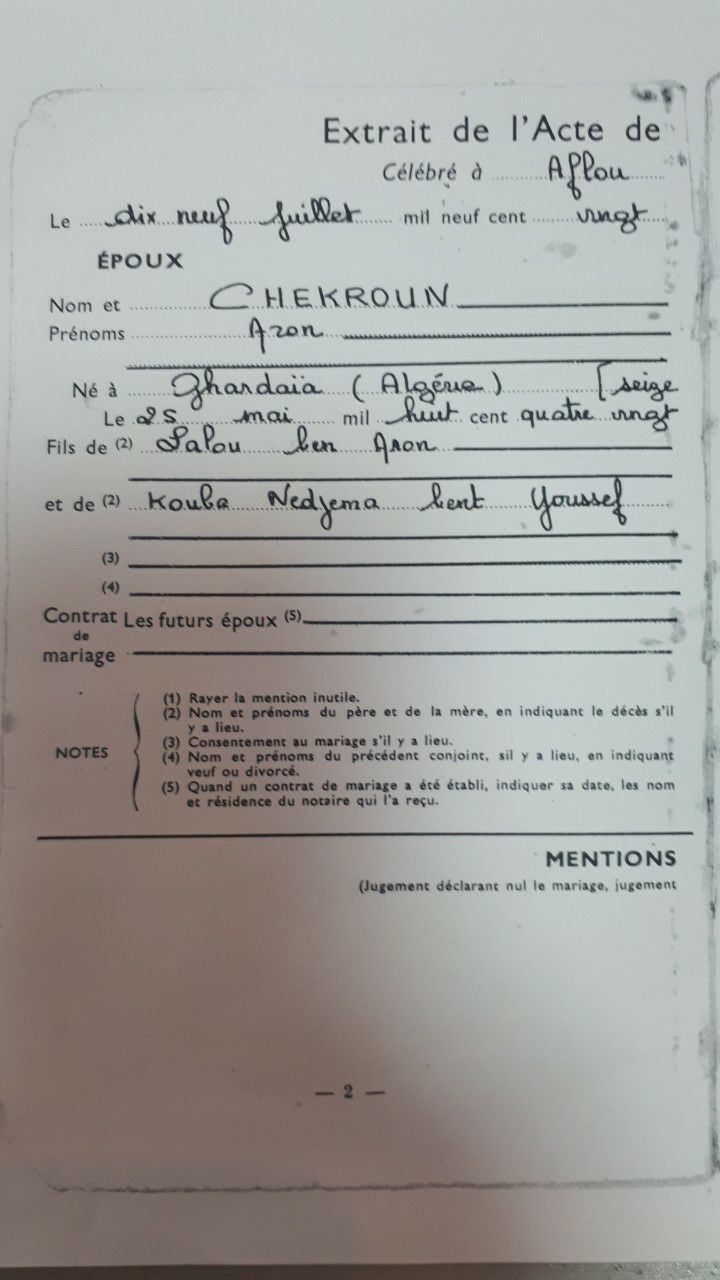 Extrait de l'Acte de
Célébré à Aflou
Le dix neuf Juillet mil neuf cent vingt
ÉPOUX
Nom et CHEKROUN
Prénoms Aron
Né à Ghardaïa (Algérie) [seize
Le 25 mai mil huit cent quatre vingt
Fils de (2) Salou ben Aron
et de (2) Kouba Nedjema bent Youssef
(3)
(4)
Contrat de mariage Les futurs époux (5)
NOTES
(1) Rayer la mention inutile.
(2) Nom et prénoms du père et de la mère, en indiquant le décès s'il
y a lieu.
(3) Consentement au mariage s'il y a lieu.
(4) Nom et prénoms du précédent conjoint, sil y a lieu, en indiquant
veuf ou divorcé.
(5) Quand un contrat de mariage a été établi, indiquer sa date, les nom
et résidence du notaire qui l'a reçu.
MENTIONS
(Jugement déclarant nul le mariage, jugement
— 2 —